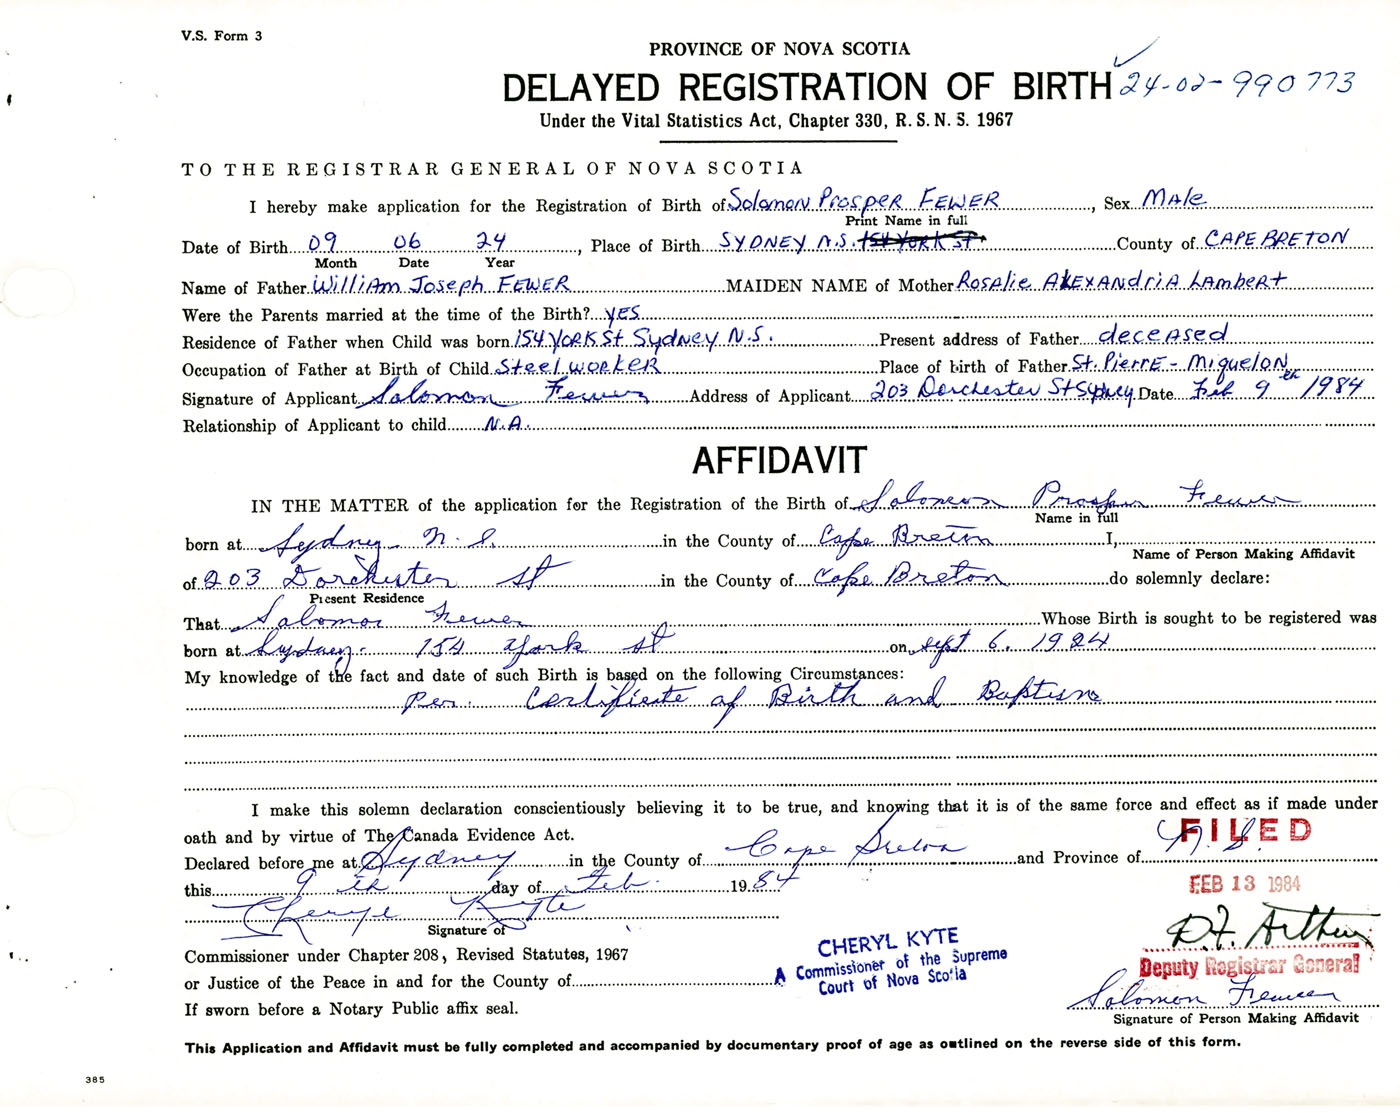 V.S. Form 3
PROVINCE OF NOVA SCOTIA
DELAYED REGISTRATION OF BIRTH 24-02-990773
Under the Vital Statistics Act, Chapter 330, R.S.N.S. 1967
TO THE REGISTRAR GENERAL OF NOVA SCOTIA
I hereby make application for the Registration of Birth of Solomon Prosper FEWER, Sex Male
Print Name in full
Date of Birth 09 06 24, Place of Birth SYDNEY N.S. 154 YORK St County of CAPE BRETON
Month Date Year
Name of Father William Joseph FEWER MAIDEN NAME of Mother Rosalie ALEXANdriA LAmbert
Were the Parents married at the time of the Birth? YES
Residence of Father when Child was born 154 YORK St Sydney N.S. Present address of Father deceased
Occupation of Father at Birth of Child Steel worker Place of birth of Father St. PierrE - Miquelon
Signature of Applicant Solomon Fewer Address of Applicant 203 Dorchester St Sydney Date Feb 9th 1984
Relationship of Applicant to child N.A.
AFFIDAVIT
IN THE MATTER of the application for the Registration of the Birth of Solomon Prosper Fewer
Name in full
born at Sydney N.S. in the County of Cape Breton I,
Name of Person Making Affidavit
of 203 Dorchester St in the County of Cape Breton do solemnly declare:
Present Residence
That Solomon Fewer Whose Birth is sought to be registered was
born at Sydney - 154 York St on Sept 6. 1924
My knowledge of the fact and date of such Birth is based on the following Circumstances:
Per. Certificate of Birth and Baptism
I make this solemn declaration conscientiously believing it to be true, and knowing that it is of the same force and effect as if made under
oath and by virtue of The Canada Evidence Act.
FILED
Declared before me at Sydney in the County of Cape Breton and Province of N.S.
this 9th day of Feb. 1984
FEB 13 1984
Cheryl Kyte
Signature of
D.F. Arthur
Deputy Registrar General
Commissioner under Chapter 208, Revised Statutes, 1967
or Justice of the Peace in and for the County of
If sworn before a Notary Public affix seal.
CHERYL KYTE
A Commissioner of the Supreme
Court of Nova Scotia
Solomon Fewer
Signature of Person Making Affidavit
This Application and Affidavit must be fully completed and accompanied by documentary proof of age as outlined on the reverse side of this form.
385